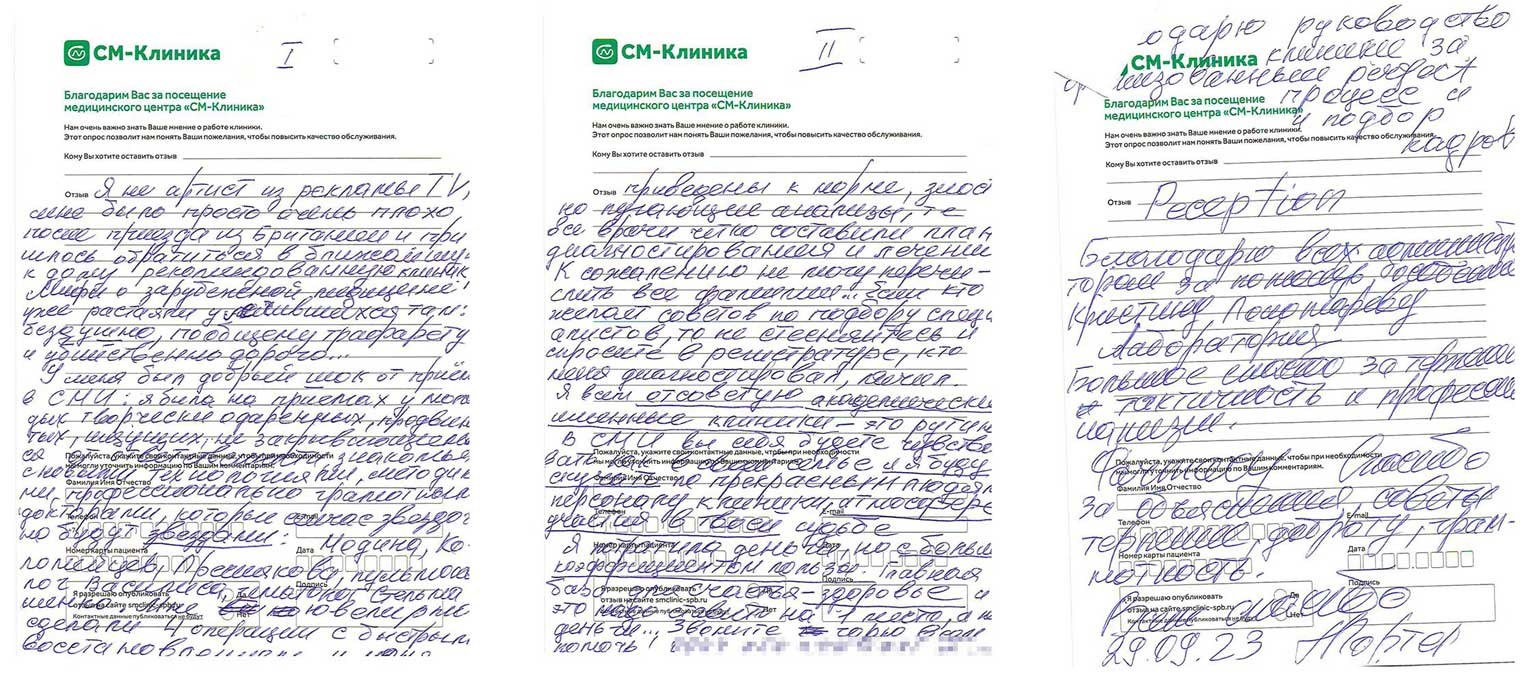 СМ-Клиника
I
Благодарим Вас за посещение
медицинского центра «СМ-Клиника»
Нам очень важно знать Ваше мнение о работе клиники.
Этот опрос позволит нам понять Ваши пожелания, чтобы повысить качество обслуживания.
Кому Вы хотите оставить отзыв
Отзыв Я не артист из рекламы TV,
мне было просто очень плохо
после приезда из Британии и при
шлось обратиться в ближайшую
к дому рекомендованную клиник
Мифы о зарубежной медицине
уже растаяли там:
бездушно, по общему трафарету
и убийственно дорого...
У меня был добрый шок от приём
в СМИ: я была на приемах у моло
дых творчески одаренных, продвин
тых, ищущих, не закрывающи
ся знакомы
Пожалуйста, укажите свои контактные данные, чтобы при необходимости
мы могли уточнить информацию по Вашим комментариям.
с новыми технологиями, методик
Фамилия Имя Отчество
ми, профессионально грамотными
докторами, которые сейчас звездо
Телефон
E-mail
но будут звездами: Мадина, Ко-
Номер карты пациента
Дата
пульмоно
Подпись
лог Василенко
Я разрешаю опубликовать
отзыв на сайте smclinic-spb.ru
Да
Нет
Контактные данные публиковаться не будут
сделали 4 операции с быстрым
восстановлением и
СМ-Клиника
II
Благодарим Вас за посещение
медицинского центра «СМ-Клиника»
Нам очень важно знать Ваше мнение о работе клиники.
Этот опрос позволит нам понять Ваши пожелания, чтобы повысить качество обслуживания.
Кому Вы хотите оставить отзыв
Отзыв приведены к норме,
но пугающие анализы, те
все врачи четко составили план
диагностирования и лечения
К сожалению не могу перечи-
слить все фамилии... Если кто
желает советов по подбору специ
алистов, то не стесняйтесь и
спросите в регистратуре, кто
меня диагностировал, лечил.
Я вам отсоветую академические
именные клиники – это рутина
В СМИ вы себя будете чувство
Пожалуйста, укажите свои контактные данные, чтобы при необходимости
мы могли уточнить информацию по Вашим комментариям.
и я буду
Фамилия Имя Отчество
ску по прекрасным людям
персоналу клиники, атмосфере
Телефон
E-mail
участия в твоей судьбе
Номер карты пациента
Дата
Я потратила деньги, но с больш
коэффициентом пользы. Главная
Подпись
база счастья – здоровье и
Я разрешаю опубликовать
отзыв на сайте smclinic-spb.ru
Да
Нет
Контактные данные публиковаться не будут
это на 1 место, а н
деньги... Звоните Вам
помочь!
одарю руководство
клиники за
изованный
процесс и
и подбор
кадров
СМ-Клиника
Благодарим Вас за посещение
медицинского центра «СМ-Клиника»
Нам очень важно знать Ваше мнение о работе клиники.
Этот опрос позволит нам понять Ваши пожелания, чтобы повысить качество обслуживания.
Кому Вы хотите оставить отзыв
Отзыв Рeception
Благодарю всех администра
торов за помощь, особенно
Кристину Пономареву
Лаборатория
Большое спасибо за терпение
тактичность и професси
нализм.
Пожалуйста, укажите свои контактные данные, чтобы при необходимости
мы могли уточнить информацию по Вашим комментариям.
Спасибо
Фамилия Имя Отчество
за объяснения советы
Телефон
E-mail
терпение доброту, грам-
Номер карты пациента
Дата
мотность.
Подпись
Я разрешаю опубликовать
отзыв на сайте smclinic-spb.ru
Да
Нет
Контактные данные публиковаться не будут
спасибо
29.09.23